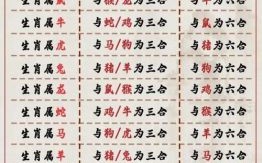 生肖属鼠 与猴/龙为三合 与牛为六合
生肖属牛 与蛇/鸡为三合 与鼠为六合
生肖属虎 与马/狗为三合 与猪为六合
生肖属兔 与猪/羊为三合 与狗为六合
生肖属龙 与鼠/猴为三合 与鸡为六合
生肖属蛇 与鸡/牛为三合 与猴为六合
生肖属马 与狗/虎为三合 与羊为六合
生肖属羊 与猪/兔为三合 与马为六合